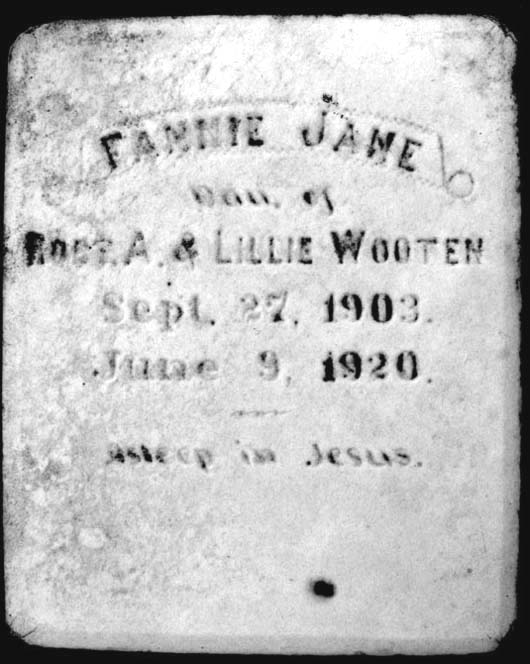 FANNIE JANE
Dau. of
ROBT. A. & LILLIE WOOTEN
Sept. 27, 1903.
June 9, 1920.
Asleep in Jesus.